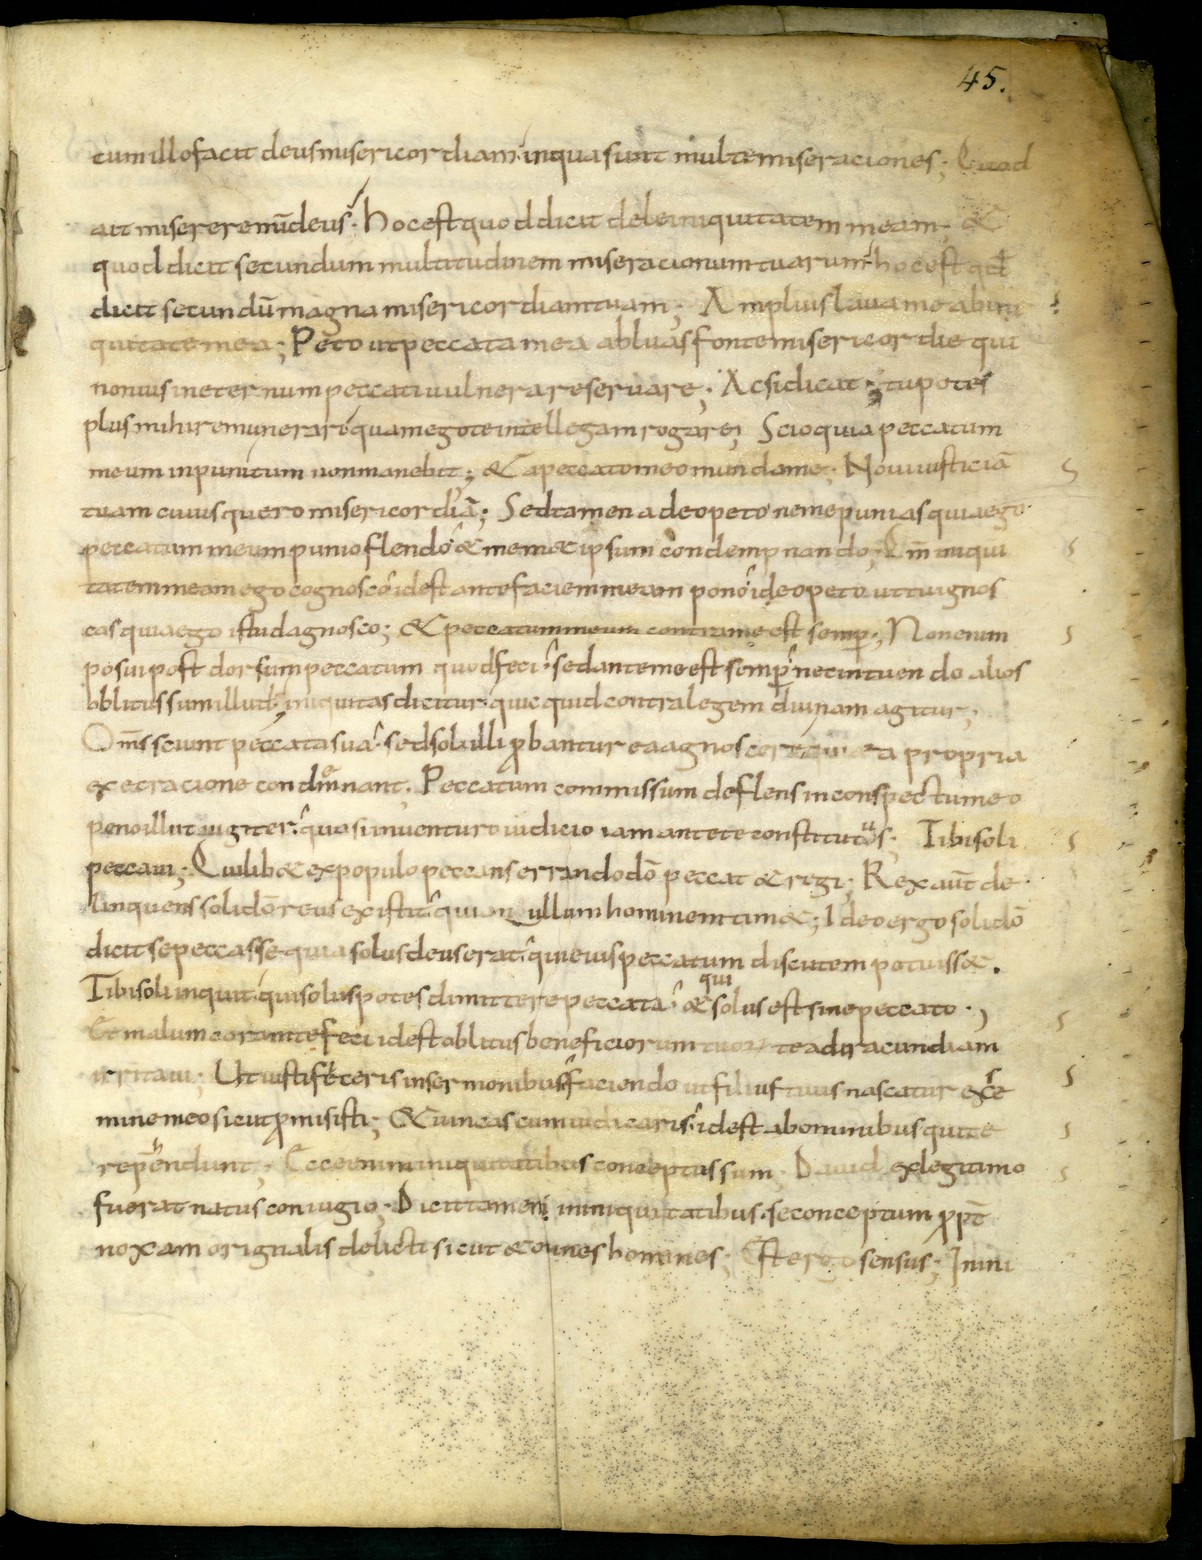 45.
cum illo facit deus misericordiam in qua sunt multe miseraciones; Quod
ait miserere mei deus. hoc est quod dicit dele iniquitatem meam; &
quod dicit secundum multitudinem miseracionum tuarum hoc est qđ
dicit secundū magna misericordiam tuam; Amplius laua me ab ini
quitate mea; Peto ut peccata mea abluas fonte misericordie qui
non uis in eternum peccati uulnera reseruare; Ac si dicat; tu potes
plus mihi remunerari quam ego te intellegam rogare; Scio quia peccatum
meum inpunitum non manebit; & a peccato meo munda me; Noui iusticiā
tuam cuius quero misericordiā; Sed tamen adeo peto ne me punias quia ego
peccatum meum punio flendo & mem& ipsum condempnando; Qm̄ iniqui
tatem meam ego cognosco id est ante faciem meam pono ideo peto ut tu ignos
cas quia ego istud agnosco; & peccatum meum contra me est semp; Non enim
posui post dorsum peccatum quod feci sed ante me est semp nec intuendo alios
oblitus sum illud; iniquitas dicitur quicquid contra legem diuinam agitur;
Oms sciunt peccata sua sed soli illi pbantur ea agnoscere qui ea propria
execracione condemnant; Peccatum commissum deflens in conspectu meo
peno illut iugiter quasi in uenturo iudicio iam ante te constitutus; Tibi soli
peccaui; Quilib& ex populo peccans errando dō peccat & regi; Rex aūt de
linquens soli dō reus existit quia n ullum hominem tim&; Ideo ergo soli dō
dicit se peccasse quia solus deus erat qui eius peccatum discutem potuiss&.
Tibi soli inquit qui solus potes dimittere peccata & qui solus est sine peccato;
Et malum coram te feci id est oblitus beneficiorum tuorum te ad iracundiam
irritaui; Ut iustificeris in sermonibus faciendo ut filius tuus nascatur ex se
mine meo sicut pmisisti; & uincas cum iudicaris id est ab ominibus qui te
reprehendunt; Ecce enim in iniquitatibus conceptus sum; Dauid ex legitimo
fuerat natus coniugio; Dicit tamen in iniquitatibus se conceptum ppt
noxam originalis delicti sicut & omnes homines; Est ergo sensus; In ini